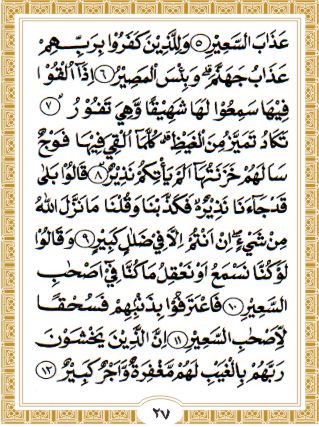 عَذَابَ السَّعِيْرِ ۝٥ وَلِلَّذِيْنَ كَفَرُوْا بِرَبِّهِمْ
عَذَابُ جَهَنَّمَ ؕ وَبِئْسَ الْمَصِيْرُ ۝٦ اِذَاۤ اُلْقُوْا
فِيْهَا سَمِعُوْا لَهَا شَهِيْقًا وَّهِيَ تَفُوْرُ ۝٧
تَكَادُ تَمَيَّزُ مِنَ الْغَيْظِ ؕ كُلَّمَاۤ اُلْقِيَ فِيْهَا فَوْجٌ
سَاَلَهُمْ خَزَنَتُهَاۤ اَلَمْ يَاْتِكُمْ نَذِيْرٌ ۝٨ قَالُوْا بَلٰى
قَدْ جَآءَنَا نَذِيْرٌ ۙ فَكَذَّبْنَا وَقُلْنَا مَا نَزَّلَ اللّٰهُ
مِنْ شَيْءٍ ۚ اِنْ اَنْتُمْ اِلَّا فِيْ ضَلٰلٍ كَبِيْرٍ ۝٩ وَقَالُوْا
لَوْ كُنَّا نَسْمَعُ اَوْ نَعْقِلُ مَا كُنَّا فِيْۤ اَصْحٰبِ
السَّعِيْرِ ۝١٠ فَاعْتَرَفُوْا بِذَنْۢبِهِمْ ۚ فَسُحْقًا
لِّاَصْحٰبِ السَّعِيْرِ ۝١١ اِنَّ الَّذِيْنَ يَخْشَوْنَ
رَبَّهُمْ بِالْغَيْبِ لَهُمْ مَّغْفِرَةٌ وَّاَجْرٌ كَبِيْرٌ ۝١٢
٢٧